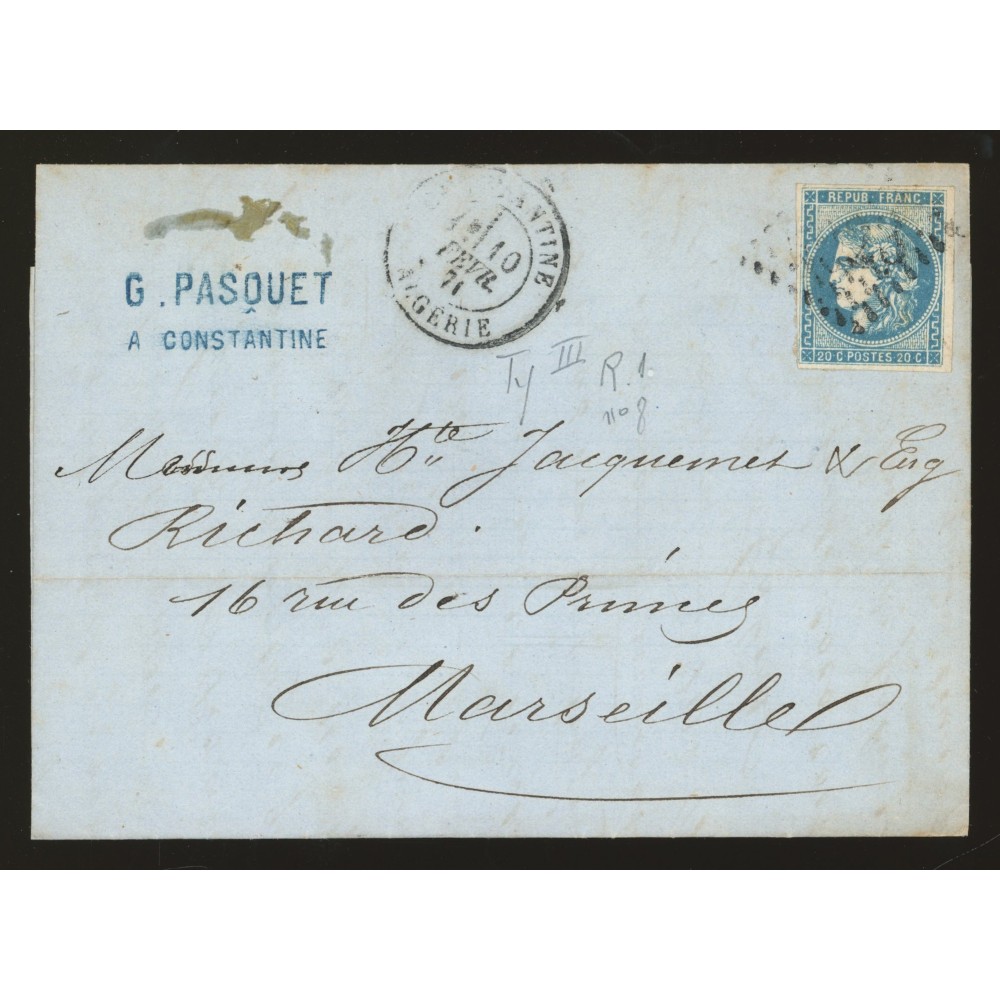 G. PASQUET
A CONSTANTINE
CONSTANTINE
10
FEVR.
71
ALGERIE
REPUB. FRANC.
20 C POSTES 20 C
Ty III R.1.
no 8.
Messieurs Hte Jacquemet & Eug
Richard.
16 rue des Princes
Marseille